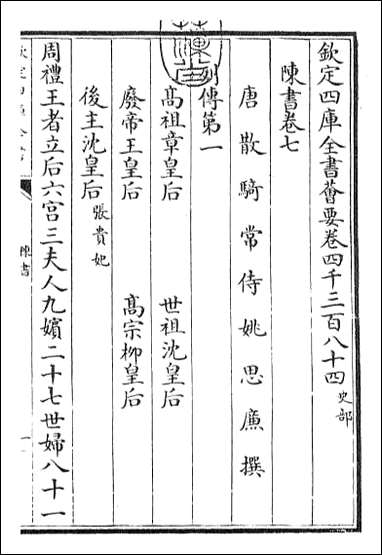 欽定四庫全書薈要卷四千三百八十四史部
陳書卷七
唐散騎常侍姚思廉撰
列傳第一
高祖章皇后　世祖沈皇后
廢帝王皇后　高宗柳皇后
後主沈皇后張貴妃
周禮王者立后六宫三夫人九嬪二十七世婦八十一
陳書